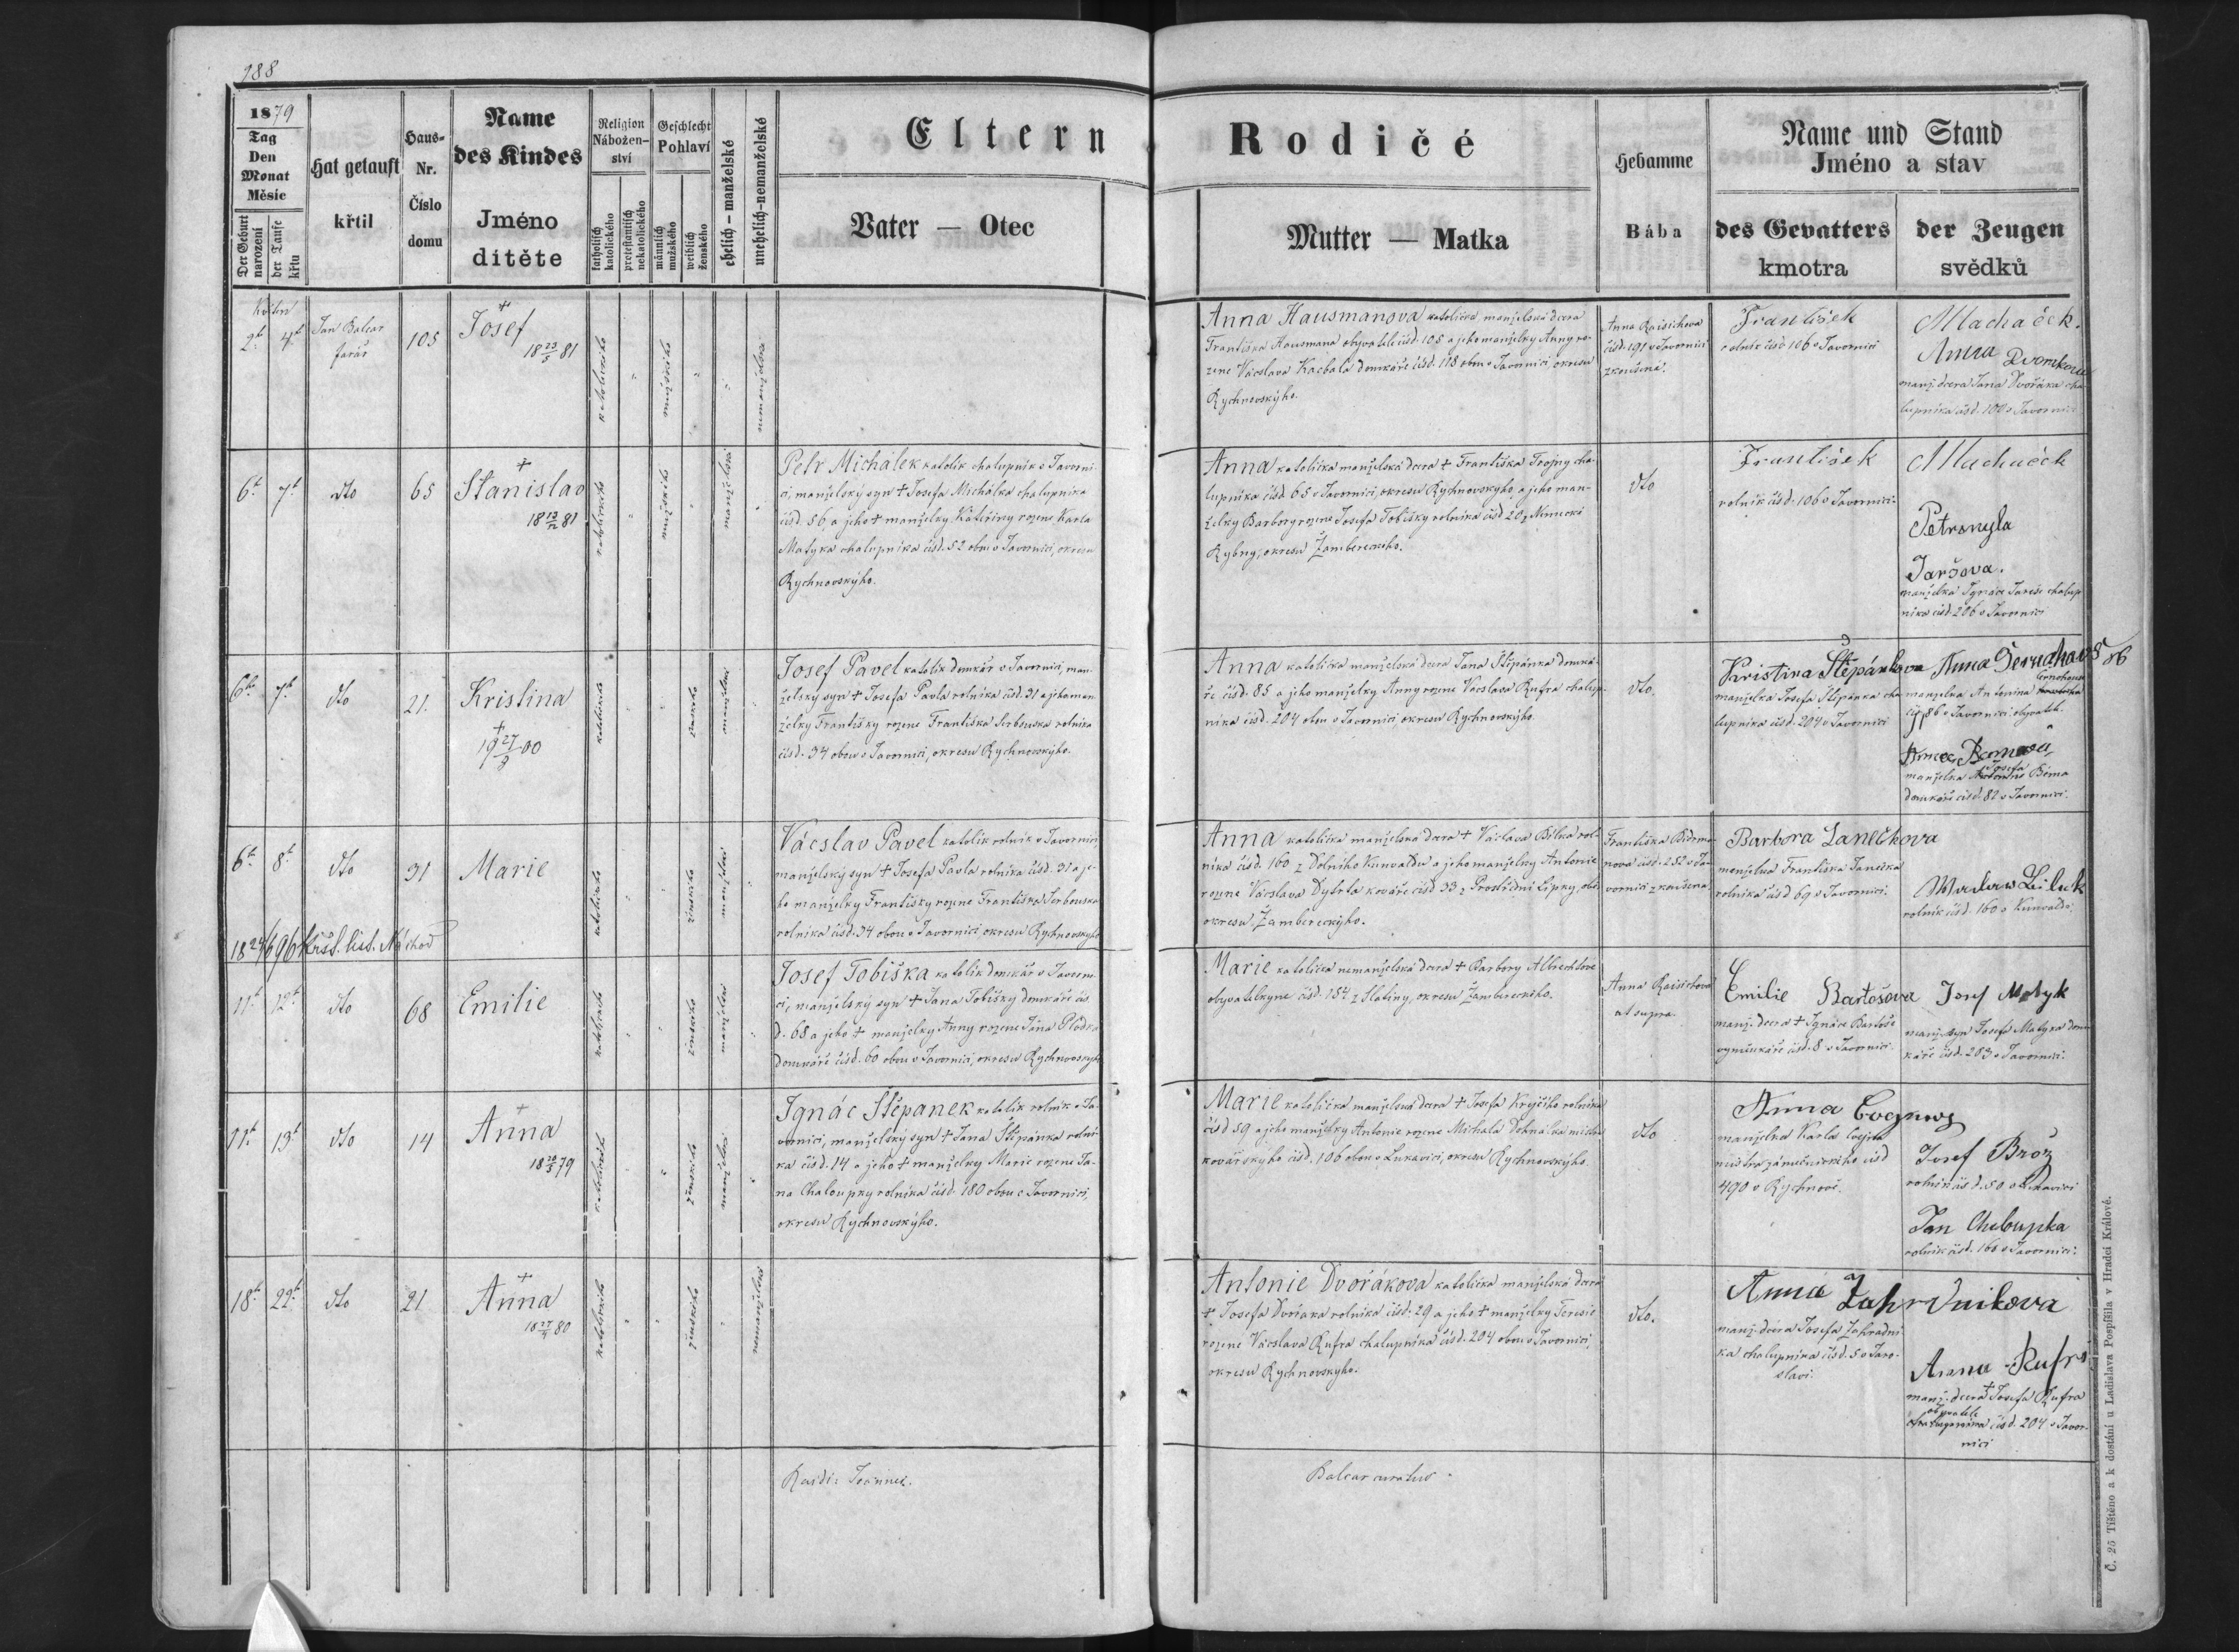 188
1879
Tag
Den
Monat
Měsíc
Der Geburt
narození
der Taufe
křtu
Hat getauft
křtil
Haus-
Nr.
Číslo
domu
Name
des Kindes
Jméno
dítěte
Religion
Nábožen-
ství
katholisch
katolického
protestantisch
nekatolického
Geschlecht
Pohlaví
männlich
mužského
weiblich
ženského
ehelich – manželské
unehelich-nemanželské
Eltern
Rodičé
Vater — Otec
Mutter — Matka
Hebamme
Bába
Name und Stand
Jméno a stav
des Gevatters
kmotra
der Zeugen
svědků
Květen
2t 4t
Jan Balcar
farář
105
Josef
18 23/5 81
katolického
mužského
nemanželské
Anna Hausmanova katolička, manželská dcera
Františka Hausmana obyvatele čísd. 105 a jeho manželky Anny ro-
zené Václava Kačbala domkáře čísd. 118 obou v Javornici, okresu
Rychnovského.
Anna Raisichova
čísd. 191 v Javornici
zkoušená.
František
rolník čísd 106 v Javornici
Machaček.
Anna Dvorakova
manž. dcera Jana Dvořáka cha-
lupníka čísd. 100 v Javornici
6t 7t
dto
65
Stanislav
18 13/12 81
katolického
mužského
manželské
Petr Michálek katolík chalupník v Javorni-
ci, manželský syn + Josefa Michálka chalupníka
čísd. 56, a jeho + manželky Kateřiny rozené Karla
Matyka chalupníka čísd. 52 obou v Javornici, okresu
Rychnovského.
Anna katolička manželská dcera + Františka Trojny cha-
lupníka čísd. 65 v Javornici, okresu Rychnovského, a jeho man-
želky Barbory rozené Josefa Tobišky rolníka čísd 20 z Německé
Rybny, okresu Žambereckého.
dto
František
rolník čísd. 106 v Javornici.
Machaček
Petronyla
Jaršova.
manželka Ignáce Jareše chalup-
níka čísd. 206 v Javornici
6ho 7t
dto
21.
Kristina
+
19 27/3 00
katolického
ženského
manželské
Josef Pavel katolík domkář v Javornici, man-
želský syn + Josefa Pavla rolníka čísd. 31 a jeho man-
želky Františky rozené Františka Serbouska rolníka
čísd. 34 obou v Javornici, okresu Rychnovského.
Anna katolička manželská dcera Jana Štěpánka domká-
ře čísd. 85 a jeho manželky Anny rozené Václava Rufra chalup-
níka čísd. 204 obou v Javornici, okresu Rychnovského.
dto.
Kristina Štěpánkova
manželka Josefa Štěpánka cha-
lupníka čísd. 204 v Javornici
manželka Antonína
86 v Javornici obyvatele.
manželka Josefa Bému
domkáře čísd. 82 v Javornici.
6t 8t
dto
31
Marie
katolického
ženského
manželské
1824/6 96 Křest. list. Náchod
Václav Pavel katolík rolník v Javornici,
manželský syn + Josefa Pavla rolníka čísd. 31 a je-
ho manželky Františky rozené Františka Serbouska
rolníka čísd. 34 obou v Javornici, okresu Rychnovského
Anna katolička manželská dcera + Václava Bílka rol-
níka čísd. 160 z Dolního Kunvaldu a jeho manželky Antonie
rozené Václava Dytrta kováře čísd 33 z Prostřední Lipky, obě
okresu Žambereckého.
Františka Bidma-
nova čísd. 252 v Ja-
vornici zkoušená
Barbora Janečkova
manželka Františka Janečka
rolníka čísd 69 v Javornici.
Waclaw Bilek
rolník čísd. 160 v Kunvaldě
11t 12t
dto
68
Emilie
katolického
ženského
manželské
Josef Tobiška katolík domkář v Javorni-
ci, manželský syn + Jana Tobišky domkáře čís-
d. 68 a jeho + manželky Anny rozené Jána Plodka
domkáře čísd. 60 obou v Javornici, okresu Rychnovského
Marie katolička nemanželská dcera + Barbory Albrechtove
obyvatelkyně čísd. 154 z Slatiny, okresu Žambereckého.
Anna Raisichova
ut supra.
Emilie Bartošova
manž. dcera + Ignáce Bartoše
výměnkáře čísd. 8 v Javornici.
Josef Matyk
manž. syn Josefa Matyka dom-
káře čísd. 283 v Javornici.
11t 13t
dto
14
Anna
18 20/5 79
katolického
ženského
manželské
Ignác Štěpanek katolík rolník v Ja-
vornici, manželský syn + Jana Štěpánka rolní-
ka čísd. 14 a jeho + manželky Marie rozené Ja-
na Chaloupky rolníka čísd. 180 obou v Javornici,
okresu Rychnovského.
Marie katolička manželská dcera + Josefa Krejčího rolníka
čísd 59 a jeho manželky Antonie rozené Michala Dohnálka mistra
kovářského čísd. 106 obou v Lukavici, okresu Rychnovského
dto
Anna
manželka Karla
mistra zámečnického čísd
490 v Rychnově.
Josef Brož
rolník čísd. 50 v Lukavici
Jan Chaloupka
rolník čísd. 160 v Javornici.
18t 22t
dto
21
Anna
18 27/4 80
katolického
ženského
nemanželské
Antonie Dvořákova katolička manželská dcera
+ Josefa Dvořáka rolníka čísd. 29 a jeho + manželky Teresie
rozené Václava Rufra chalupníka čísd. 204 obou v Javornici,
okresu Rychnovského.
dto.
Anna Zahradnikova
manž. dcera Josefa Zahradní-
ka chalupníka čísd. 5 v Jaro-
slavi.
Anna Rufr
manž. dcera + Josefa Rufra
obyvatele
čísd. 204 v Javor-
nici
Balcar curatus.
Č. 25 Tištěno a k dostání u Ladislava Pospíšila v Hradci Králové.